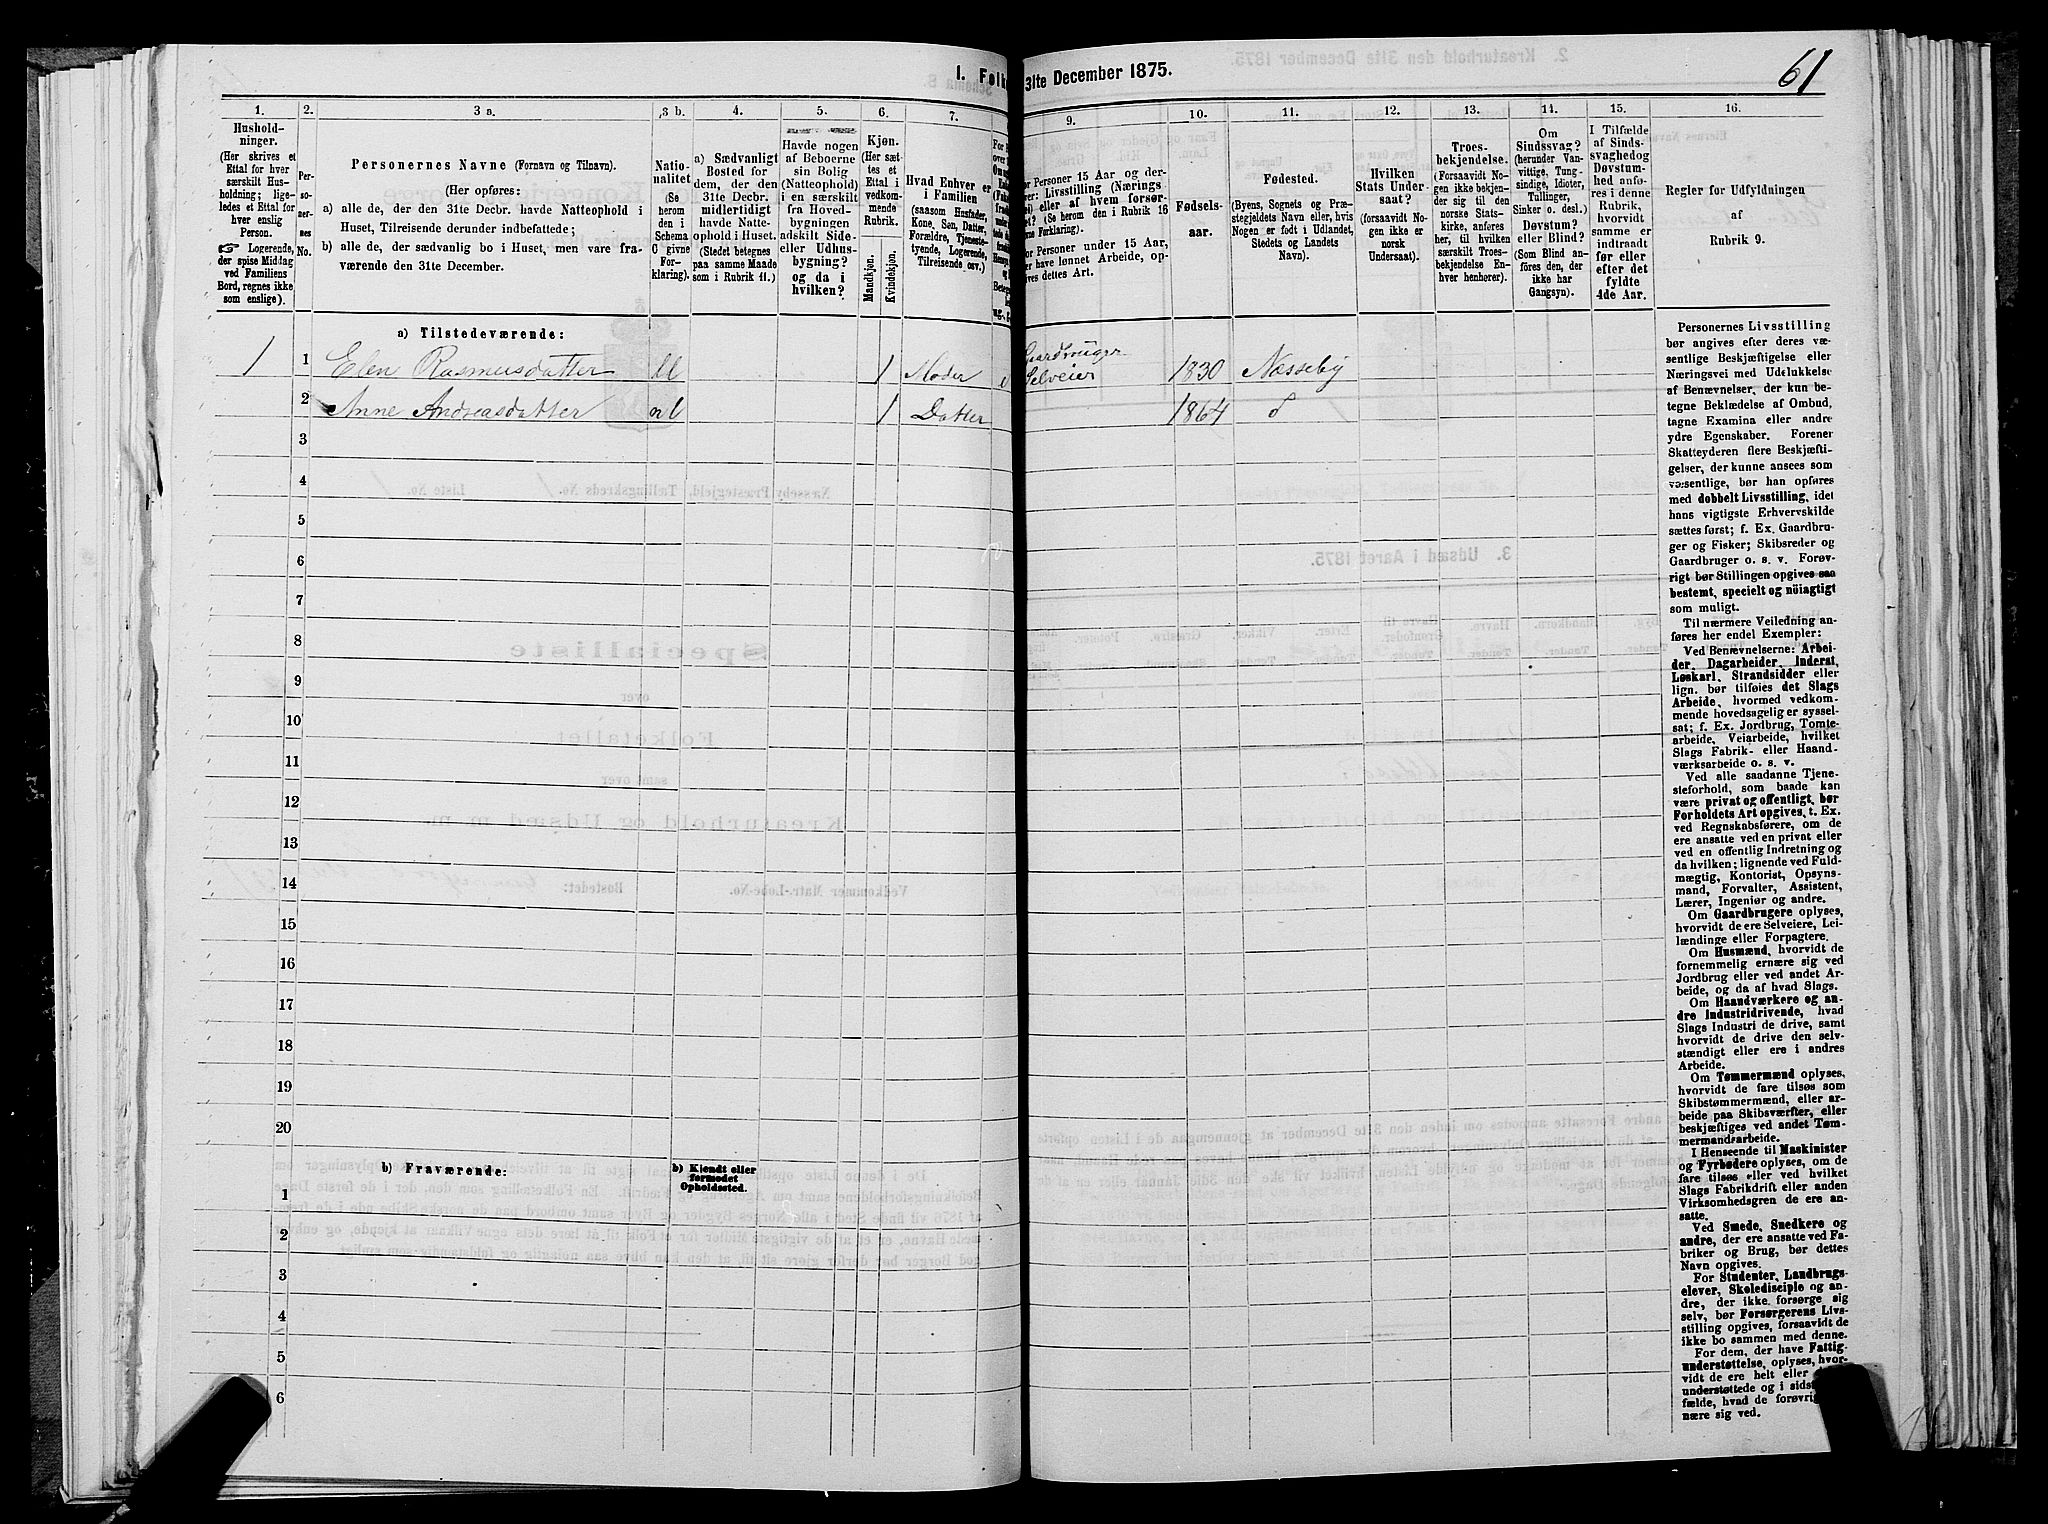 61
1. Folke
31te December 1875.
1.
2.
3 a.
3 b.
4.
5.
6.
7.
9.
10.
11.
12.
13.
14.
15.
16.
Hushold-
ninger.
(Her skrives et
Ettal for hver
særskilt Hus-
holdning; lige-
ledes et Ettal for
hver enslig
Person.
☞ Logerende,
der spise Middag
ved Familiens
Bord, regnes ikke
som enslige).
Per-
so-
ner-
nes
No.
Personernes Navne (Fornavn og Tilnavn).
(Her opføres:
a) alle de, der den 31te Decbr. havde Natteophold i
Huset, Tilreisende derunder indbefattede;
b) alle de, der sædvanlig bo i Huset, men vare fra-
værende den 31te December.
Natio-
nalitet
(Se
herom
den i
Schema
O givne
For-
klaring).
a) Sædvanligt
Bosted for
dem, der den
31te Decbr.
midlertidigt
havde Natte-
ophold i Huset.
(Stedet betegnes
paa samme Maade
som i Rubrik 11.)
Havde nogen
af Beboerne
sin Bolig
(Natteophold)
i en særskilt
fra Hoved-
bygningen
adskilt Side-
eller Udhus-
bygning?
og da i
hvilken?
Kjøn.
(Her sæt-
tes et
Ettal i
vedkom-
mende
Rubrik.
Mandkjøn.
Kvindekjøn.
Hvad Enhver er
i Familien
(saasom Husfader,
Kone, Søn, Datter,
Forældre, Tjeneste-
tyende, Logerende,
Tilreisende osv.)
or Personer 15 Aar og der-
rer: Livsstilling (Nærings
ei) eller af hvem forsør-
et? (Se herom den i Rubrik 16
ne Forklaring).
r Personer under 15 Aar,
er have lønnet Arbeide, op-
ives dettes Art.
Fødsels-
aar.
Fødested.
(Byens, Sognets og Præ-
stegjeldets Navn eller, hvis
Nogen er født i Udlandet,
Stedets og Landets
Navn).
Hvilken
Stats Under-
saat?
(forsaavidt No-
gen ikke er
norsk
Undersaat).
Troes-
bekjendelse.
(Forsaavidt No-
gen ikke bekjen-
der sig til den
norske Stats-
kirke, anføres
her, til hvilken
særskilt Troes-
bekjendelse En-
hver henhører).
Om
Sindssvag?
(herunder Van-
vittige, Tung-
sindige, Idioter,
Tullinger,
Sinker o. desl.)
Døvstum?
eller Blind?
(Som Blind an-
føres den, der
ikke har
Gangsyn).
I Tilfælde
af Sinds-
svaghedog
Døvstum-
hed anfø-
res i denne
Rubrik,
hvorvidt
samme er
indtraadt
før eller
efter det
fyldte
4de Aar.
Regler for Udfyldningen
af
Rubrik 9.
a) Tilstedeværende:
1 1 Elen Rasmusdatter 1 Moder Gaardbruger Selveier 1830 Næsseby
2 Anne Andreasdatter 1 Datter 1864 d
3
4
5
6
7
8
9
10
11
12
13
14
15
16
17
18
19
20
b) Fraværende:
b) Kjendt eller
formodet
Opholdssted.
1
2
3
4
5
6
Personernes Livsstilling
bør angives efter deres væ-
sentlige Beskjæftigelse eller
Næringsvei med Udelukkelse
af Benævnelser, der kun be-
tegne Beklædelse af Ombud,
tagne Examina eller andre
ydre Egenskaber. Forener
Skatteyderen flere Beskjæfti-
gelser, der kunne ansees som
væsentlige, bør han opføres
med dobbelt Livsstilling, idet
hans vigtigste Erhvervskilde
sættes først; f. Ex. Gaardbru-
ger og Fisker; Skibsreder og
Gaardbruger o. s. v. Forøv-
rigt bør Stillingen opgives saa
bestemt, specielt og nöiagtigt
som muligt.
Til nærmere Veiledning an-
føres her endel Exempler:
Ved Benævnelserne: Arbei-
der, Dagarbeider, Inderst,
Løskarl, Strandsidder eller
lign. bør tilføies det Slags
Arbeide, hvormed vedkom-
mende hovedsagelig er syssel-
sat; f. Ex. Jordbrug, Tomte-
arbeide, Veiarbeide, hvilket
Slags Fabrik- eller Haand-
værksarbeide o. s. v.
Ved alle saadanne Tjene-
steforhold, som baade kan
være privat og offentligt, bør
Forholdets Art opgives, t. Ex.
ved Regnskabsførere, om de
ere ansatte ved en privat eller
ved en offentlig Indretning og
da hvilken; lignende ved Fuld-
mægtig, Kontorist, Opsyns-
mand, Forvalter, Assistent,
Lærer, Ingeniør og andre.
Om Gaardbrugere oplyses,
hvorvidt de ere Selveiere, Lei-
lændinge eller Forpagtere.
Om Husmænd, hvorvidt de
fornemmelig ernære sig ved
Jordbrug eller ved andet Ar-
beide, og da af hvad Slags.
Om Haandværkere og an-
dre Industridrivende, hvad
Slags Industri de drive, samt
hvorvidt de drive den selv-
stændigt eller ere i andres
Arbeide.
Om Tømmermænd oplyses,
hvorvidt de fare tilsøs som
Skibstømmermænd, eller ar-
beide paa Skibsværfter, eller
beskjæftiges ved andet Tøm-
mermandsarbeide.
I Henseende til Maskinister
og Fyrbødere oplyses, om de
fare tilsøs eller ved hvilket
Slags Fabrikdrift eller anden
Virksomhedsgren de ere an-
satte.
Ved Smede, Snedkere og
andre, der ere ansatte ved Fa-
briker og Brug, bør dettes
Navn opgives.
For Studenter, Landbrugs-
elever, Skoledisciple og an-
dre, der ikke forsørge sig
selv, bør Forsørgerens Livs-
stilling opgives, forsaavidt de
ikke bo sammen med denne.
For dem, der have Fattig-
understøttelse, oplyses, hvor-
vidt de ere helt eller
understøttede og i sidst
fælde, hvad de forøvrig
nære sig ved.